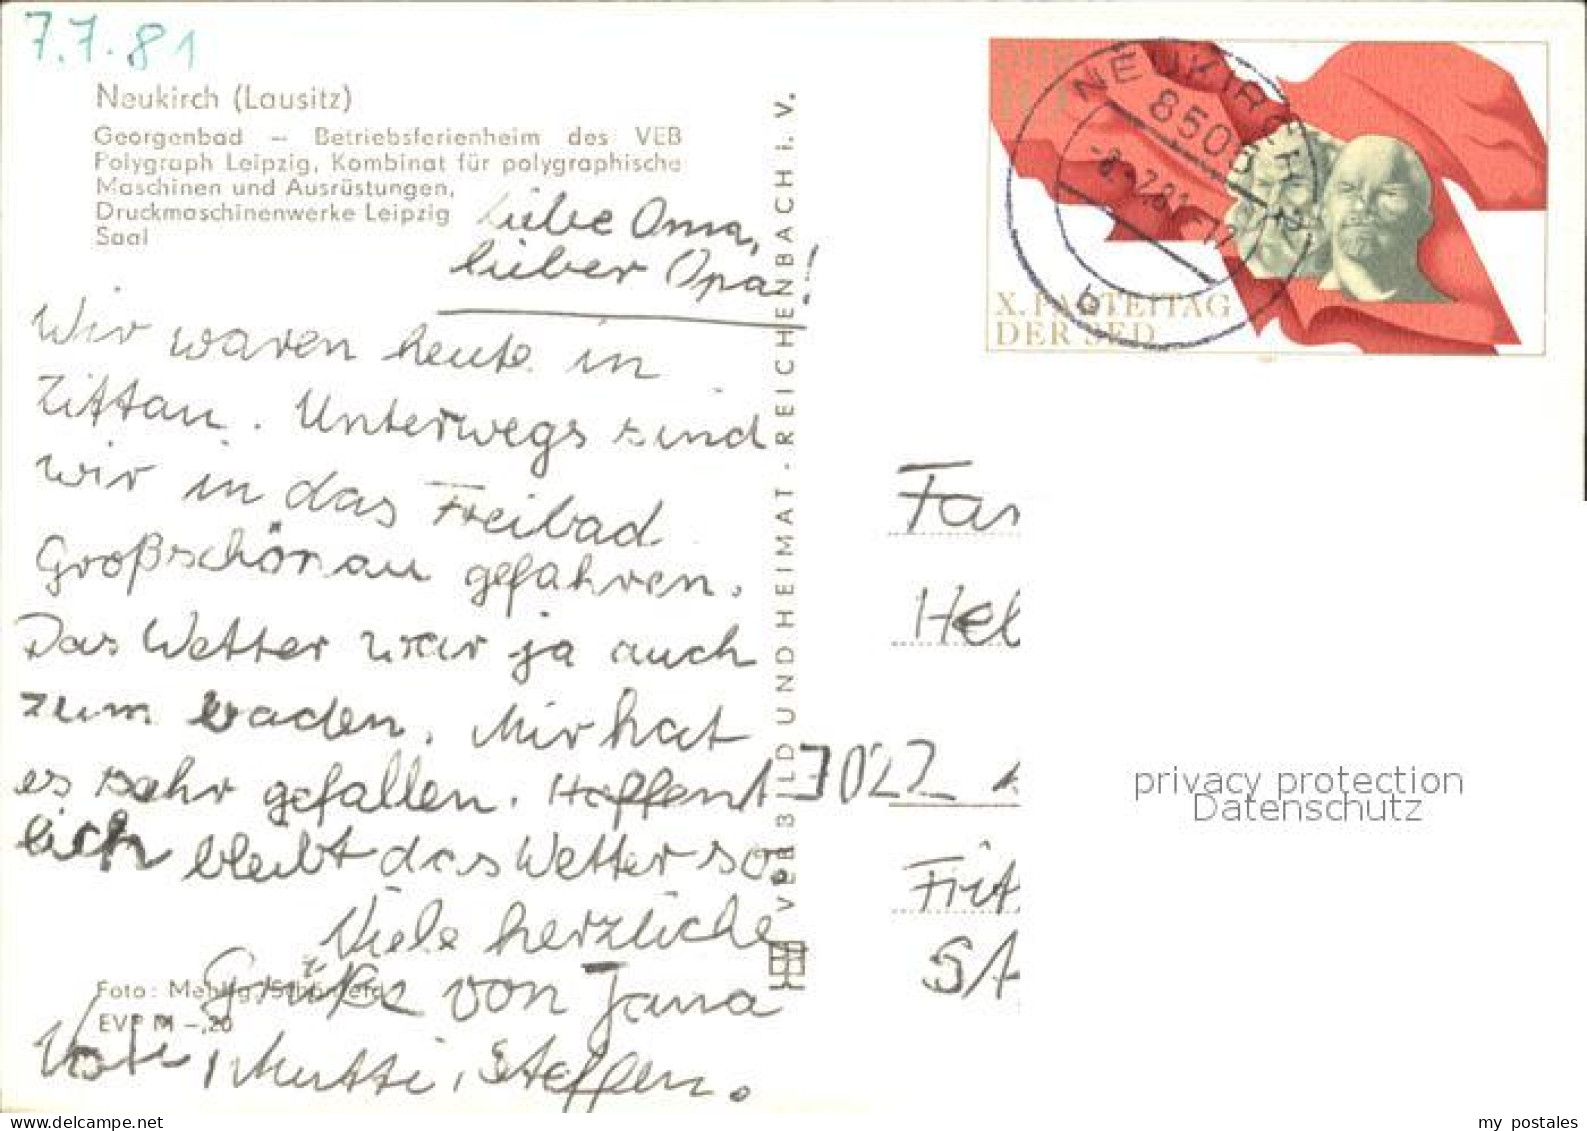 7.7.81
Neukirch (Lausitz)
Georgenbad – Betriebsferienheim des VEB
Polygraph Leipzig, Kombinat für polygraphische
Maschinen und Ausrüstungen,
Druckmaschinenwerke Leipzig
Saal
Liebe Oma,
lieber Opa!
Wir waren heute in
Zittau. Unterwegs sind
wir in das Freibad
Großschönau gefahren.
Das Wetter war ja auch
zum baden. Mir hat
es sehr gefallen. Hoffent
lich bleibt das Wetter so.
Viele herzliche
Grüße von Jana
Vati, Mutti, Steffen.
Foto: Mehlig, Schönfeld
EVP M –,20
VEB BILD UND HEIMAT · REICHENBACH i. V.
NEUKIRCH
8505
-8.-7.81-17
b
X. PARTEITAG
DER SED
Fa
Hel
7022
Frit
SA
privacy protection
Datenschutz
www.delcampe.net
my postales